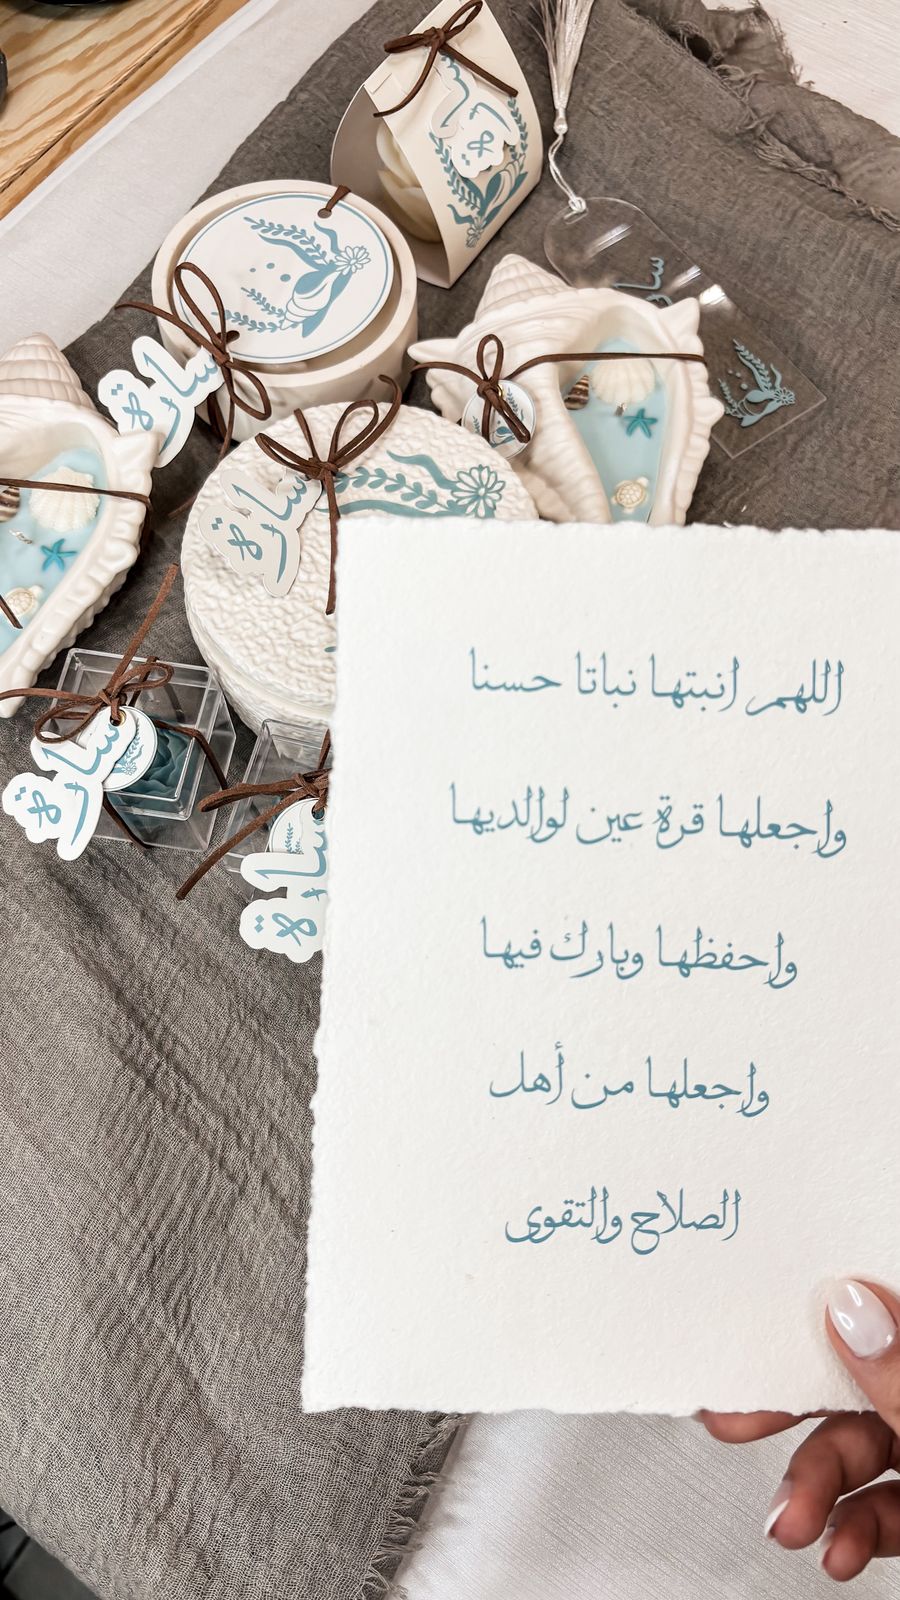 سارة
سارة
سارة
سارة
سارة
سارة
اللهم انبتها نباتا حسنا
واجعلها قرة عين لوالديها
واحفظها وبارك فيها
واجعلها من أهل
الصلاح والتقوى